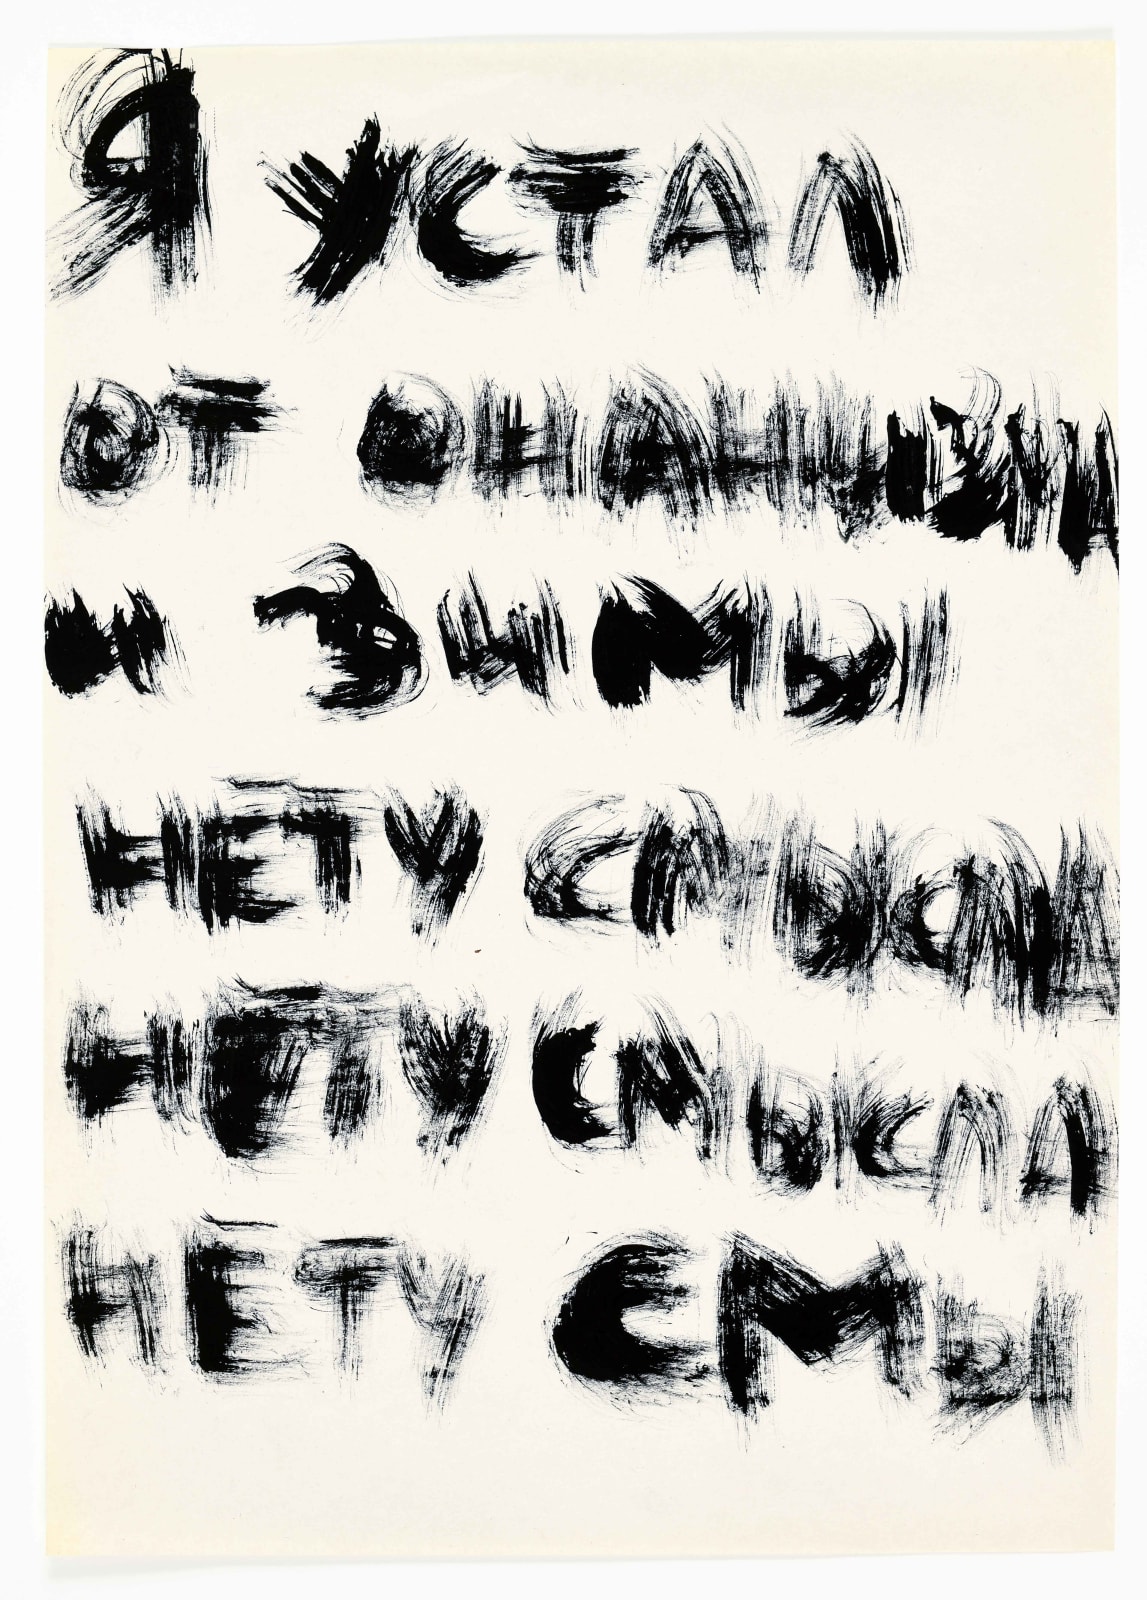 Я УСТАЛ
ОТ ОНАНИЗМА
И ЗИМЫ
НЕТУ СМЫСЛА
НЕТУ СМЫСЛА
НЕТУ СМЫ